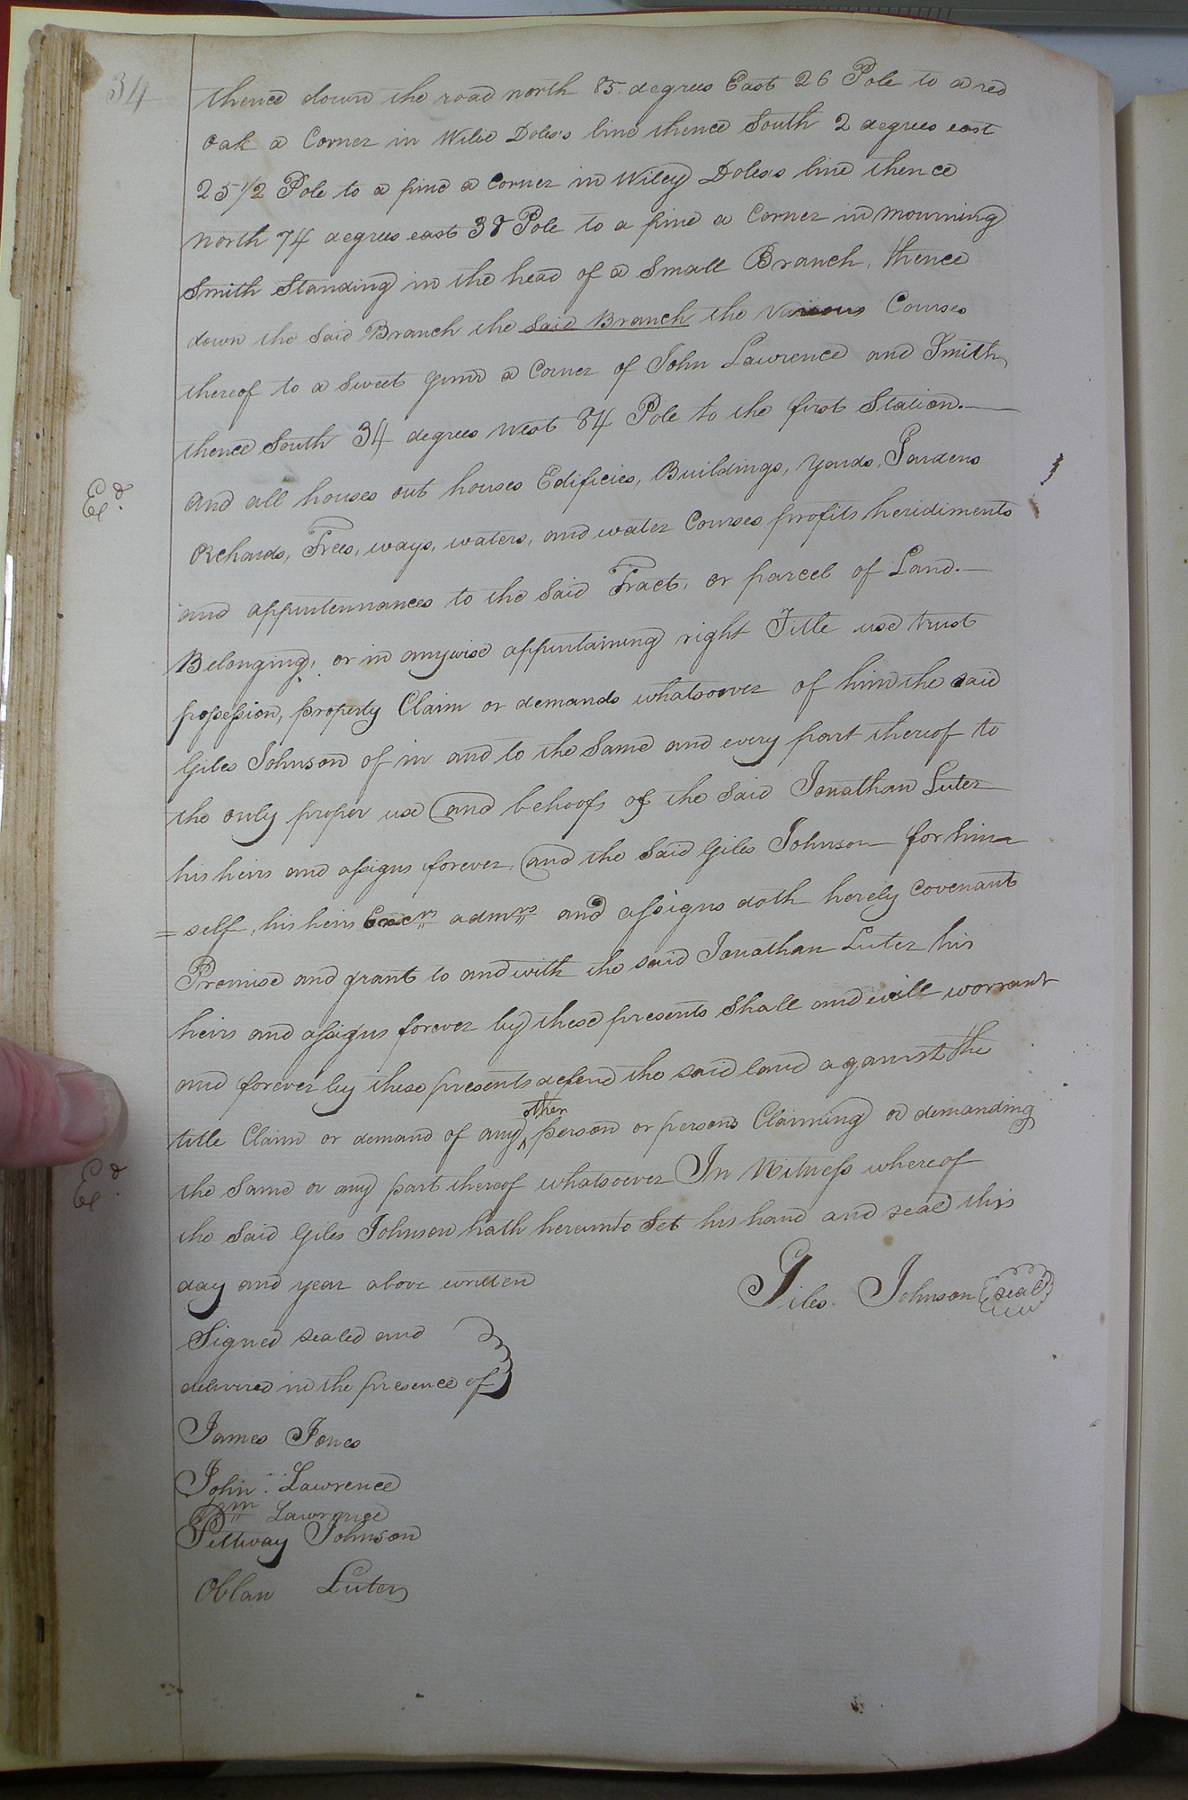 34
thence down the road north 85 degrees East 26 Pole to a red
oak a Corner in Wilie Doles's line thence South 2 degrees east
25 1/2 Pole to a pine a Corner in Wiley Doles's line thence
north 74 degrees east 38 Pole to a pine a Corner in mourning
Smith Standing in the head of a Small Branch, thence
down the Said Branch the Said Branch the various Courses
thereof to a Sweet gum a Corner of John Lawrence and Smith
thence South 34 degrees west 84 Pole to the first Station.
and all houses out houses Edificies, Buildings, yards, Gardens
Orchards, Trees, ways, waters, and water Courses profits heridiments
and appurtennances to the Said Tract, or parcel of Land.
Belonging, or in anywise appurtaining right Title use trust
possession, property Claim or demands whatsoever of him the said
Giles Johnson of in and to the Same and every part thereof to
the only proper use and behoofs of the Said Jonathan Luter
his heirs and assigns forever, and the Said Giles Johnson for him
=self, his heirs Excrs admrs and assigns doth hereby Covenant
Promise and grant to and with the said Jonathan Luter his
heirs and assigns forever by these presents Shall and will warrant
and forever by these presents defend the said land against the
title Claim or demand of any other person or persons Claiming or demanding
the Same or any part thereof whatsoever In Witness whereof
the Said Giles Johnson hath hereunto Set his hand and seal this
day and year above written
Giles Johnson (seal)
Signed sealed and
delivered in the presence of
James Jones
John Lawrence
Lawrence
Pettway Johnson
Oblan Luter